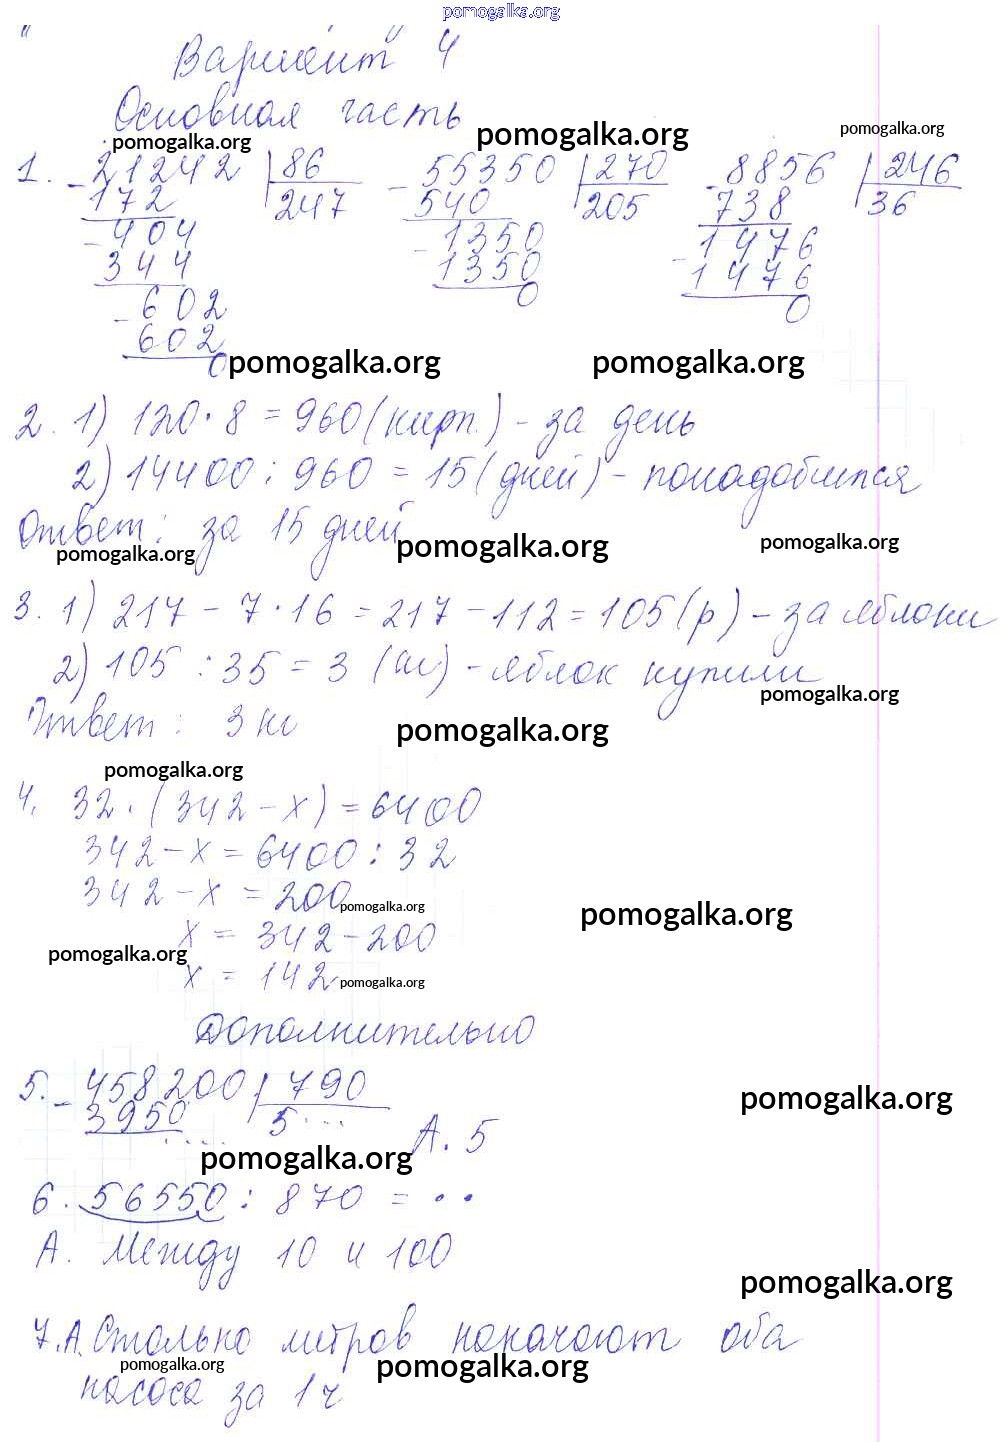 pomogalka.org
"Вариант" 4
Основная часть
pomogalka.org pomogalka.org pomogalka.org
1. - 21242 | 86 - 55350 | 270 - 8856 | 246
172 247 540 205 738 36
- 404 - 1350 - 1476
344 1350 1476
- 602 0 0
602
0
pomogalka.org pomogalka.org
2. 1) 120 · 8 = 960 (кирп.) - за день
2) 14400 : 960 = 15 (дней) - понадобится
Ответ: за 15 дней
pomogalka.org pomogalka.org pomogalka.org
3. 1) 217 - 7 · 16 = 217 - 112 = 105 (р) - за яблоки
2) 105 : 35 = 3 (кг) - яблок купили
pomogalka.org
Ответ: 3 кг
pomogalka.org
pomogalka.org
4. 32 · (342 - х) = 6400
342 - х = 6400 : 32
342 - х = 200
pomogalka.org pomogalka.org
х = 342 - 200
pomogalka.org
х = 142
pomogalka.org
Дополнительно
5. - 458200 | 790
3950 5...
pomogalka.org
.... А. 5
pomogalka.org
6. 56550 : 870 = ··
А. Между 10 и 100
pomogalka.org
7. А. Столько литров накачают оба
pomogalka.org pomogalka.org
насоса за 1 ч